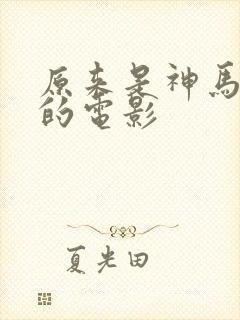 原来是神馬
的電影
夏光田